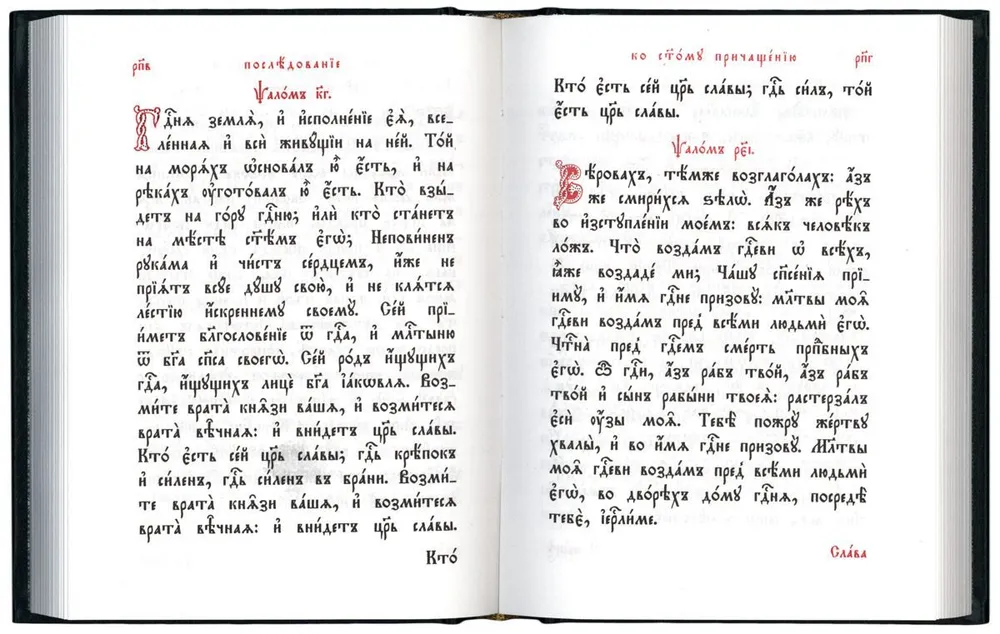 рп҃в послѣ́дованїе
Ѱало́мъ к҃г.
Гдⷭ҇ня землѧ̀, и҆ и҆сполне́нїе є҆ѧ̀, все-
ле́нная и҆ всѝ живꙋ́щїи на не́й. То́й
на морѧ́хъ ѡ҆снова́лъ ю҆̀ є҆́сть, и҆ на
рѣка́хъ ᲂу҆гото́валъ ю҆̀ є҆́сть. Кто̀ взы́-
детъ на го́рꙋ гдⷭ҇ню; и҆лѝ кто̀ ста́нетъ
на мѣ́стѣ ст҃ѣ́мъ є҆гѡ̀; Непови́ненъ
рꙋка́ма и҆ чи́стъ се́рдцемъ, и҆́же не
прїѧ́тъ всꙋ́е дꙋ́шꙋ свою̀, и҆ не клѧ́тсѧ
ле́стїю и҆́скреннемꙋ своемꙋ̀. Се́й прїи́-
метъ блгⷭ҇ове́нїе ѿ гдⷭ҇а, и҆ млⷭ҇тыню
ѿ бг҃а сп҃са своегѡ̀. Се́й ро́дъ и҆́щꙋщихъ
гдⷭ҇а, и҆́щꙋщихъ лицѐ бг҃а і҆а́кѡвлѧ. Воз-
ми́те врата̀ кнѧ̑зи ва́шѧ, и҆ возми́тесѧ
врата̀ вѣ̑чнаѧ: и҆ вни́детъ цр҃ь сла́вы.
Кто̀ є҆́сть се́й цр҃ь сла́вы; гдⷭ҇ь крѣ́покъ
и҆ си́ленъ, гдⷭ҇ь си́ленъ въ бра́ни. Возми́-
те врата̀ кнѧ̑зи ва́шѧ, и҆ возми́тесѧ
врата̀ вѣ̑чнаѧ: и҆ вни́детъ цр҃ь сла́вы.
Кто̀
ко ст҃о́мꙋ причаще́нїю рп҃г
Кто̀ є҆́сть се́й цр҃ь сла́вы; гдⷭ҇ь си́лъ, то́й
є҆́сть цр҃ь сла́вы.
Ѱало́мъ р҃еі.
Вѣ́ровахъ, тѣ́мже возглаго́лахъ: а҆́зъ
же смири́хсѧ ѕѣлѡ̀. А҆́зъ же рѣ́хъ
во и҆зстꙋпле́нїи мое́мъ: всѧ́къ человѣ́къ
ло́жъ. Что̀ возда́мъ гдⷭ҇еви ѡ҆ всѣ́хъ,
ꙗ҆̀же воздаде́ ми; Ча́шꙋ сп҃се́нїѧ прїи-
имꙋ̀, и҆ и҆́мѧ гдⷭ҇не призовꙋ̀: мл҃твы моѧ̑
гдⷭ҇еви возда́мъ пред̾ всѣ́ми людьмѝ є҆гѡ̀.
Чⷭ҇тна̀ пред̾ гдⷭ҇емъ сме́рть прпⷣбныхъ
є҆гѡ̀. Ѽ гдⷭ҇и, а҆́зъ ра́бъ тво́й, а҆́зъ ра́бъ
тво́й и҆ сы́нъ рабы́ни твоеѧ̀: растерза́лъ
є҆сѝ ᲂу҆́зы моѧ̑. Тебѣ̀ пожрꙋ̀ же́ртвꙋ
хвалы̀, и҆ во и҆́мѧ гдⷭ҇не призовꙋ̀. Мл҃твы
моѧ̑ гдⷭ҇еви возда́мъ пред̾ всѣ́ми людьмѝ
є҆гѡ̀, во дво́рѣхъ до́мꙋ гдⷭ҇нѧ, посредѣ̀
тебє̀, і҆ерⷭ҇ли́ме.
Сла́ва